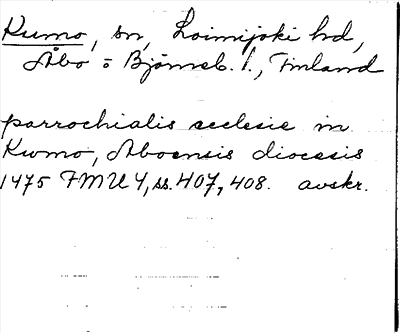 Kumo, sn, Loimijoki hd,
Åbo o Björneb. l., Finland
parrochialis ecclesie in
Kwmo, Aboensis diocesis
1475 FMU 4, ss. 407, 408. avskr.